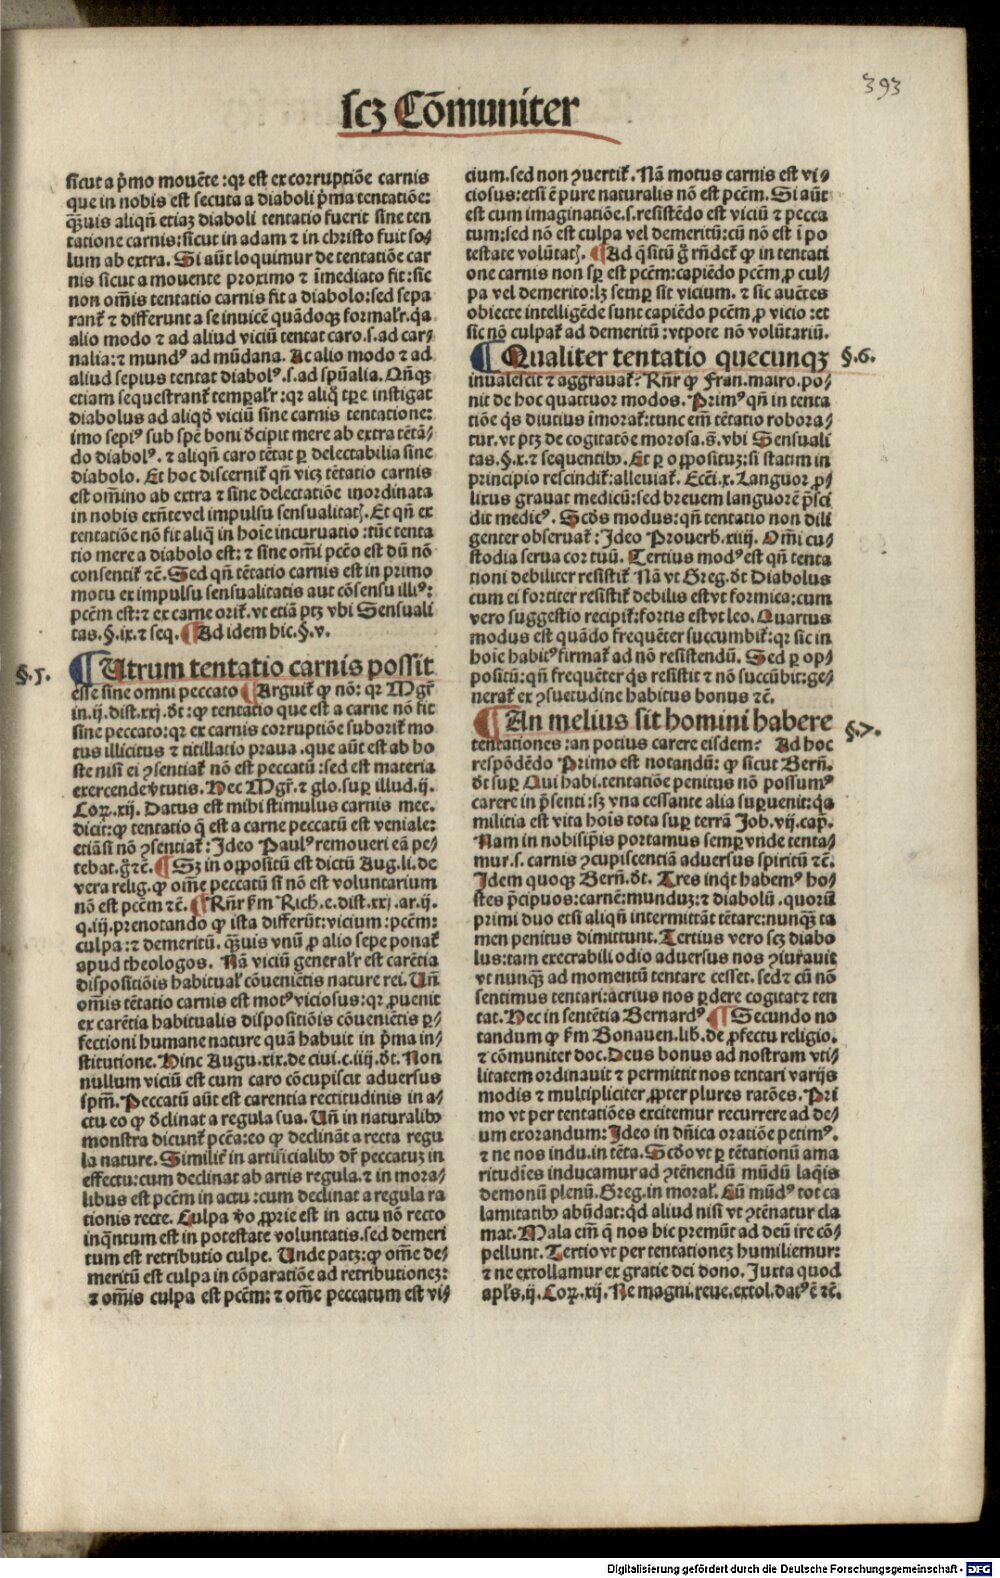 393
scꝫ Cōmuniter
sicut a p̄mo mouēte: qꝛ est ex corruptiōe carnis
que in nobis est secuta a diaboli p̄ma tentatiōe:
q̄ꝫuis aliqn̄ etiaꝫ diaboli tentatio fuerit sine ten
tatione carnis: sicut in adam ⁊ in christo fuit so⸗
lum ab extra. Si aūt loquimur de tentatiōe car
nis sicut a mouente proximo ⁊ īmediato fit: sic
non om̄is tentatio carnis fit a diabolo: sed sepa
rant̉ ⁊ differunt a se inuicē quādoqꝫ formalr̄. q̄a
alio modo ⁊ ad aliud viciū tentat caro .s. ad car⸗
nalia: ⁊ mundꝰ ad mūdana. Ac alio modo ⁊ ad
aliud sepius tentat diabolꝰ .s. ad spūalia. Qn̄qꝫ
etiam sequestrant̉ temꝑalr̄: qꝛ aliq̄ tꝑe instigat
diabolus ad aliqd̓ viciū sine carnis tentatione:
imo sepiꝰ sub spē boni d̓cipit mere ab extra tētā⸗
do diabolꝰ. ⁊ aliqn̄ caro tētat ꝑ delectabilia sine
diabolo. Et hoc discernit̉ qn̄ vicꝫ tētatio carnis
est om̄ino ab extra ⁊ sine delectatiōe inordinata
in nobis exn̄te vel impulsu sensualitatꝭ. Et qn̄ ex
tentatiōe nō fit aliq̄ in hoīe incuruatio: tūc tenta
tio mere a diabolo est: ⁊ sine om̄i pcēo est dū nō
consentit̉ ⁊c̄. Sed qn̄ tētatio carnis est in primo
motu ex impulsu sensualitatis aut cōsensu illiꝰ:
pcēm est: ⁊ ex carne orit̉. vt etiā ptꝫ vbi Sensuali
tas. §. ix. ⁊ seq. ¶ Ad idem hic. §. v.
§.5.
¶ Utrum tentatio carnis possit
esse sine omni peccato ¶ Arguit̉ ꝙ nō: qꝛ Mgr̄
in .ij. dist. xxj. d̓t: ꝙ tentatio que est a carne nō fit
sine peccato: qꝛ ex carnis corruptiōe suborit̉ mo
tus illicitus ⁊ titillatio praua. que aūt est ab ho
ste nisi ei ꝯsentiat̉ nō est peccatū: sed est materia
exercende v̓tutis. Hec Mgr̄. ⁊ glo. suꝑ illud .ij.
Coꝝ. xij. Datus est mihi stimulus carnis mee.
dicit: ꝙ tentatio q̄ est a carne peccatū est veniale:
etiā si nō ꝯsentiat̉: Ideo Paulꝰ remoueri eā pe⸗
tebat. g̊ ⁊c̄. ¶ Sꝫ in oppositū est dictū Aug. li. de
vera relig. ꝙ om̄e peccatū si nō est voluntarium
nō est pcēm ⁊c̄. ¶ Rn̄r ẜm Rich. e. dist. xxj. ar. ij.
q. iij. prenotando ꝙ ista differūt: vicium: pcēm:
culpa: ⁊ demeritū. q̄ꝫuis vnū ꝓ alio sepe ponat̉
apud theologos. Nā viciū generalr̄ est carētia
dispositiōis habitual̓ cōueniētis nature rei. Un̄
om̄is tētatio carnis est motꝰ viciosus: qꝛ ꝓuenit
ex carētia habitualis dispositiōis cōueniētis ꝑ⸗
fectioni humane nature quā habuit in p̄ma in⸗
stitutione. Hinc Augu. xix. de ciui. c. iiij. d̓t. Non
nullum viciū est cum caro cōcupiscit aduersus
spm̄. Peccatū aūt est carentia rectitudinis in a⸗
ctu eo ꝙ d̓clinat a regula sua. Un̄ in naturalibꝰ
monstra dicunt̉ pcēa: eo ꝙ declināt a recta regu
la nature. Similit̓ in artificialibꝰ dr̄ peccatuꝫ in
effectu: cum declinat ab artis regula. ⁊ in mora⸗
libus est pcēm in actu: cum declinat a regula ra
tionis recte. Culpa v̓o ꝓprie est in actu nō recto
inq̄ntum est in potestate voluntatis. sed demeri
tum est retributio culpe. Unde patꝫ: ꝙ om̄e de⸗
meritū est culpa in cōparatiōe ad retributioneꝫ:
⁊ om̄is culpa est pcēm: ⁊ om̄e peccatum est vi⸗
cium. sed non ꝯuertit̉. Nā motus carnis est vi⸗
ciosus: etsi ē pure naturalis nō est pcēm. Si aūt
est cum imaginatiōe .s. resistēdo est viciū ⁊ pecca
tum: sed nō est culpa vel demeritū: cū nō est ī po
testate volūtatꝭ. ¶ Ad q̄sitū g̊ rn̄det̉ ꝙ in tentati
one carnis non sꝑ est pcēm: capiēdo pcēm ꝓ cul⸗
pa vel demerito: lꝫ semꝑ sit vicium. ⁊ sic auētes
obiecte intelligēde sunt capiēdo pcēm ꝓ vicio: et
sic nō culpat̉ ad demeritū: vtpote nō volūtariū.
¶ Qualiter tentatio quecunqꝫ
§.6.
inualescit ⁊ aggrauat̉? Rn̄r ꝙ Fran. mairo. po⸗
nit de hoc quattuor modos. Primꝰ qn̄ in tenta
tiōe q̄s diutius īmorat̉: tunc em̄ tētatio robora⸗
tur. vt ptꝫ de cogitatōe morosa. s̄. vbi Sensuali
tas. §. x. ⁊ sequentibꝰ. Et ꝑ oppositū: si statim in
principio rescindit̉: alleuiat̉. Ecci. x. Languor ꝓ⸗
lixus grauat medicū: sed breuem languorē p̄sci
dit medicꝰ. Scd̓s modus: qn̄ tentatio non dili
genter obseruat̉: Ideo Prouerb. iiij. Om̄i cu⸗
stodia serua cor tuū. Tertius modꝰ est qn̄ tenta
tioni debiliter resistit̉ Nā vt Greg. d̓t Diabolus
cum ei fortiter resistit̉ debilis est vt formica: cum
vero suggestio recipit̉: fortis est vt leo. Quartus
modus est quādo frequēter succumbit̉: qꝛ sic in
hoīe habitꝰ firmat̉ ad nō resistendū. Sed ꝑ op⸗
positū: qn̄ frequēter q̄s resistit ⁊ nō succūbit: ge⸗
nerat̉ ex ꝯsuetudine habitus bonus ⁊c̄.
¶ An melius sit homini habere
§.7.
tentationes: an potius carere eisdem? Ad hoc
respōdēdo Primo est notandū: ꝙ sicut Bern̄.
d̓t suꝑ Qui habi. tentatiōe penitus nō possumꝰ
carere in p̄senti: sꝫ vna cessante alia suꝑuenit: q̄a
militia est vita hoīs tota suꝑ terrā Job. vij. cap̄.
Nam in nobisip̄is portamus semꝑ vnde tenta⸗
mur .s. carnis ꝯcupiscentiā aduersus spiritū ⁊c̄.
Idem quoqꝫ Bern̄. d̓t. Tres inq̄t habemꝰ ho⸗
stes p̄cipuos: carnē: munduꝫ: ⁊ diabolū. quorū
primi duo etsi aliqn̄ intermittāt tētare: nunq̄ꝫ ta
men penitus dimittunt. Tertius vero scꝫ diabo
lus: tam execrabili odio aduersus nos ꝯiurauit
vt nunq̄ꝫ ad momentū tentare cesset. sed ⁊ cū nō
sentimus tentari: acrius nos ꝑdere cogitat ⁊ ten
tat. Hec in sentētia Bernardꝰ ¶ Secundo no
tandum ꝙ ẜm Bonauen. lib. de ꝓfectu religio.
⁊ cōmuniter doc. Deus bonus ad nostram vti⸗
litatem ordinauit ⁊ permittit nos tentari varijs
modis ⁊ multipliciter, ꝓpter plures ratōes. Pri
mo vt per tentatiōes excitemur recurrere ad de⸗
um exorandum: Ideo in dn̄ica oratiōe petimꝰ.
⁊ ne nos indu. in tēta. Scd̓o vt ꝑ tētationū ama
ritudīes inducamur ad ꝯtēnendū mūdū laq̄is
demonū plenū. Greg. in moral̓. Eū mūdꝰ tot ca
lamitatibꝰ abūdat: qd̓ aliud nisi vt ꝯtēnatur cla
mat. Mala em̄ q̄ nos hic premūt ad deū ire cō⸗
pellunt. Tertio vt per tentationeꝫ humiliemur:
⁊ ne extollamur ex gratie dei dono. Juxta quod
apl̓s. ij. Coꝝ. xij. Ne magni. reue. extol. datꝰ ē ⁊c̄.
Digitalisierung gefördert durch die Deutsche Forschungsgemeinschaft - DFG